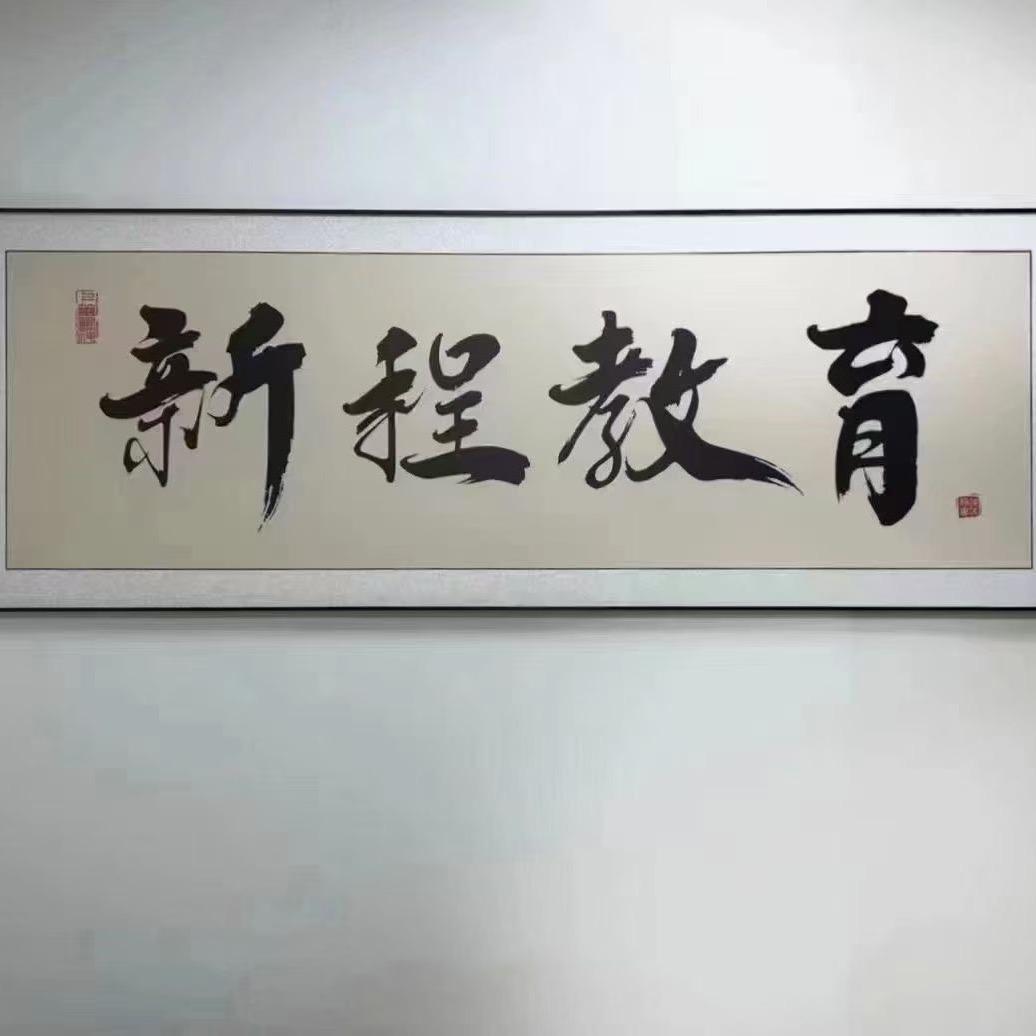 新程教育